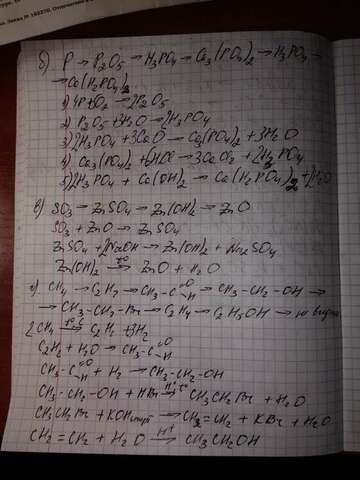 б) P → P2O5 → H3PO4 → Ca3(PO4)2 → H3PO4 →
→ Ca(H2PO4)2
1) 4P + O2 → 2P2O5
2) P2O5 + 3H2O → 2H3PO4
3) 2H3PO4 + 3CaO → Ca3(PO4)2 + 3H2O
4) Ca3(PO4)2 + 6HCl → 3CaCl2 + 2H3PO4
5) 2H3PO4 + Ca(OH)2 → Ca(H2PO4)2 + 2H2O
в) SO3 → ZnSO4 → Zn(OH)2 → ZnO
SO3 + ZnO → ZnSO4
ZnSO4 + 2NaOH → Zn(OH)2 + Na2SO4
Zn(OH)2 t° → ZnO + H2O
г) CH4 → C2H2 → CH3-C=O-H → CH3-CH2-OH →
→ CH3-CH2-Br → C2H4 → C2H5OH →
2CH4 t°C → C2H2 + 3H2
C2H2 + H2O → CH3-C=O-H
CH3-C=O-H + H2 → CH3-CH2-OH
CH3-CH2-OH + HBr H+ t° → CH3CH2Br + H2O
CH3CH2Br + KOH спирт → CH2=CH2 + KBr + H2O
CH2=CH2 + H2O H+ → CH3CH2OH